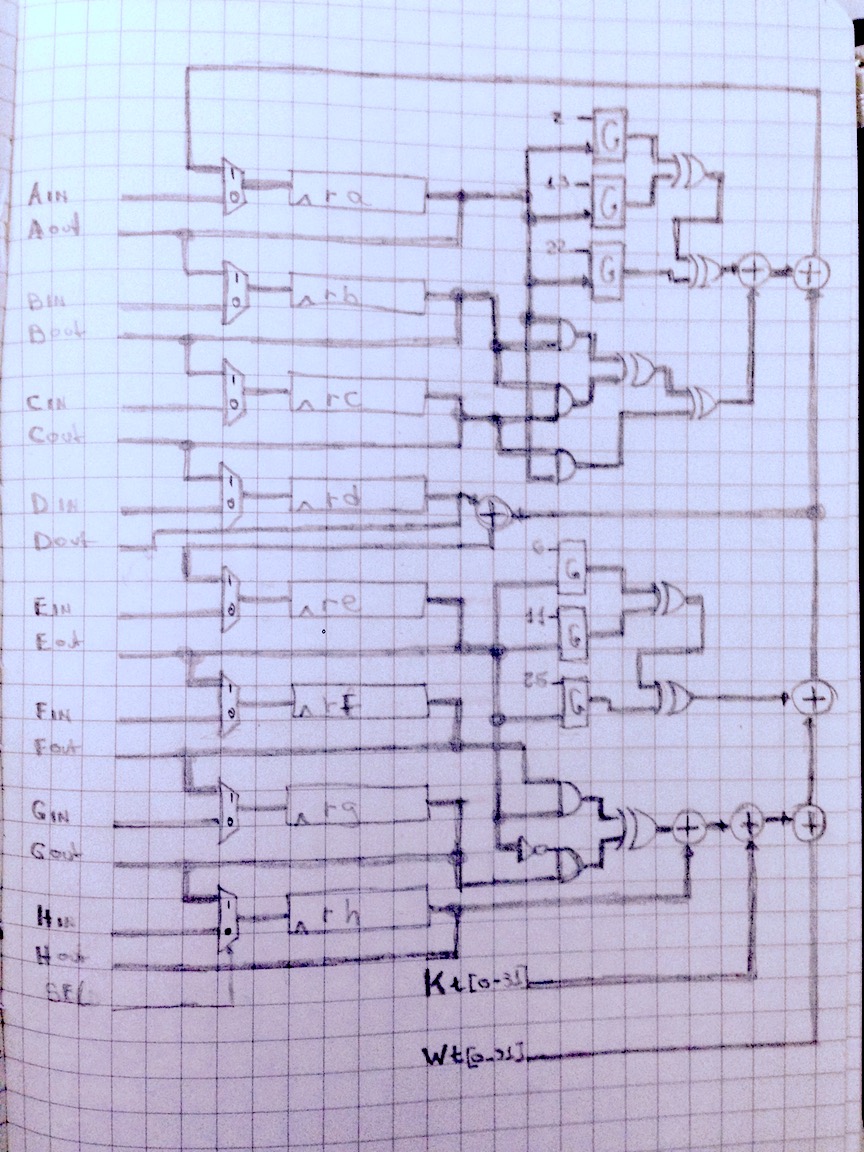 2
G
AIN
1 0
ra
13
G
Aout
22
G
BIN
1 0
rb
Bout
CIN
1 0
rc
Cout
DIN
1 0
rd
Dout
6
G
EIN
1 0
re
11
G
Eout
25
G
FIN
1 0
rf
Fout
GIN
1 0
rg
Gout
HIN
1 0
rh
Hout
SEL
Kt[0-31]
Wt[0-31]